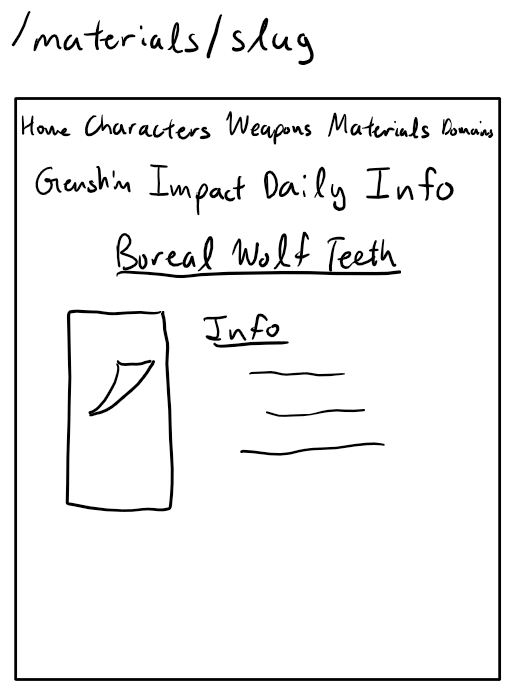 /materials/slug
Home Characters Weapons Materials Domains
Genshin Impact Daily Info
Boreal Wolf Teeth
Info